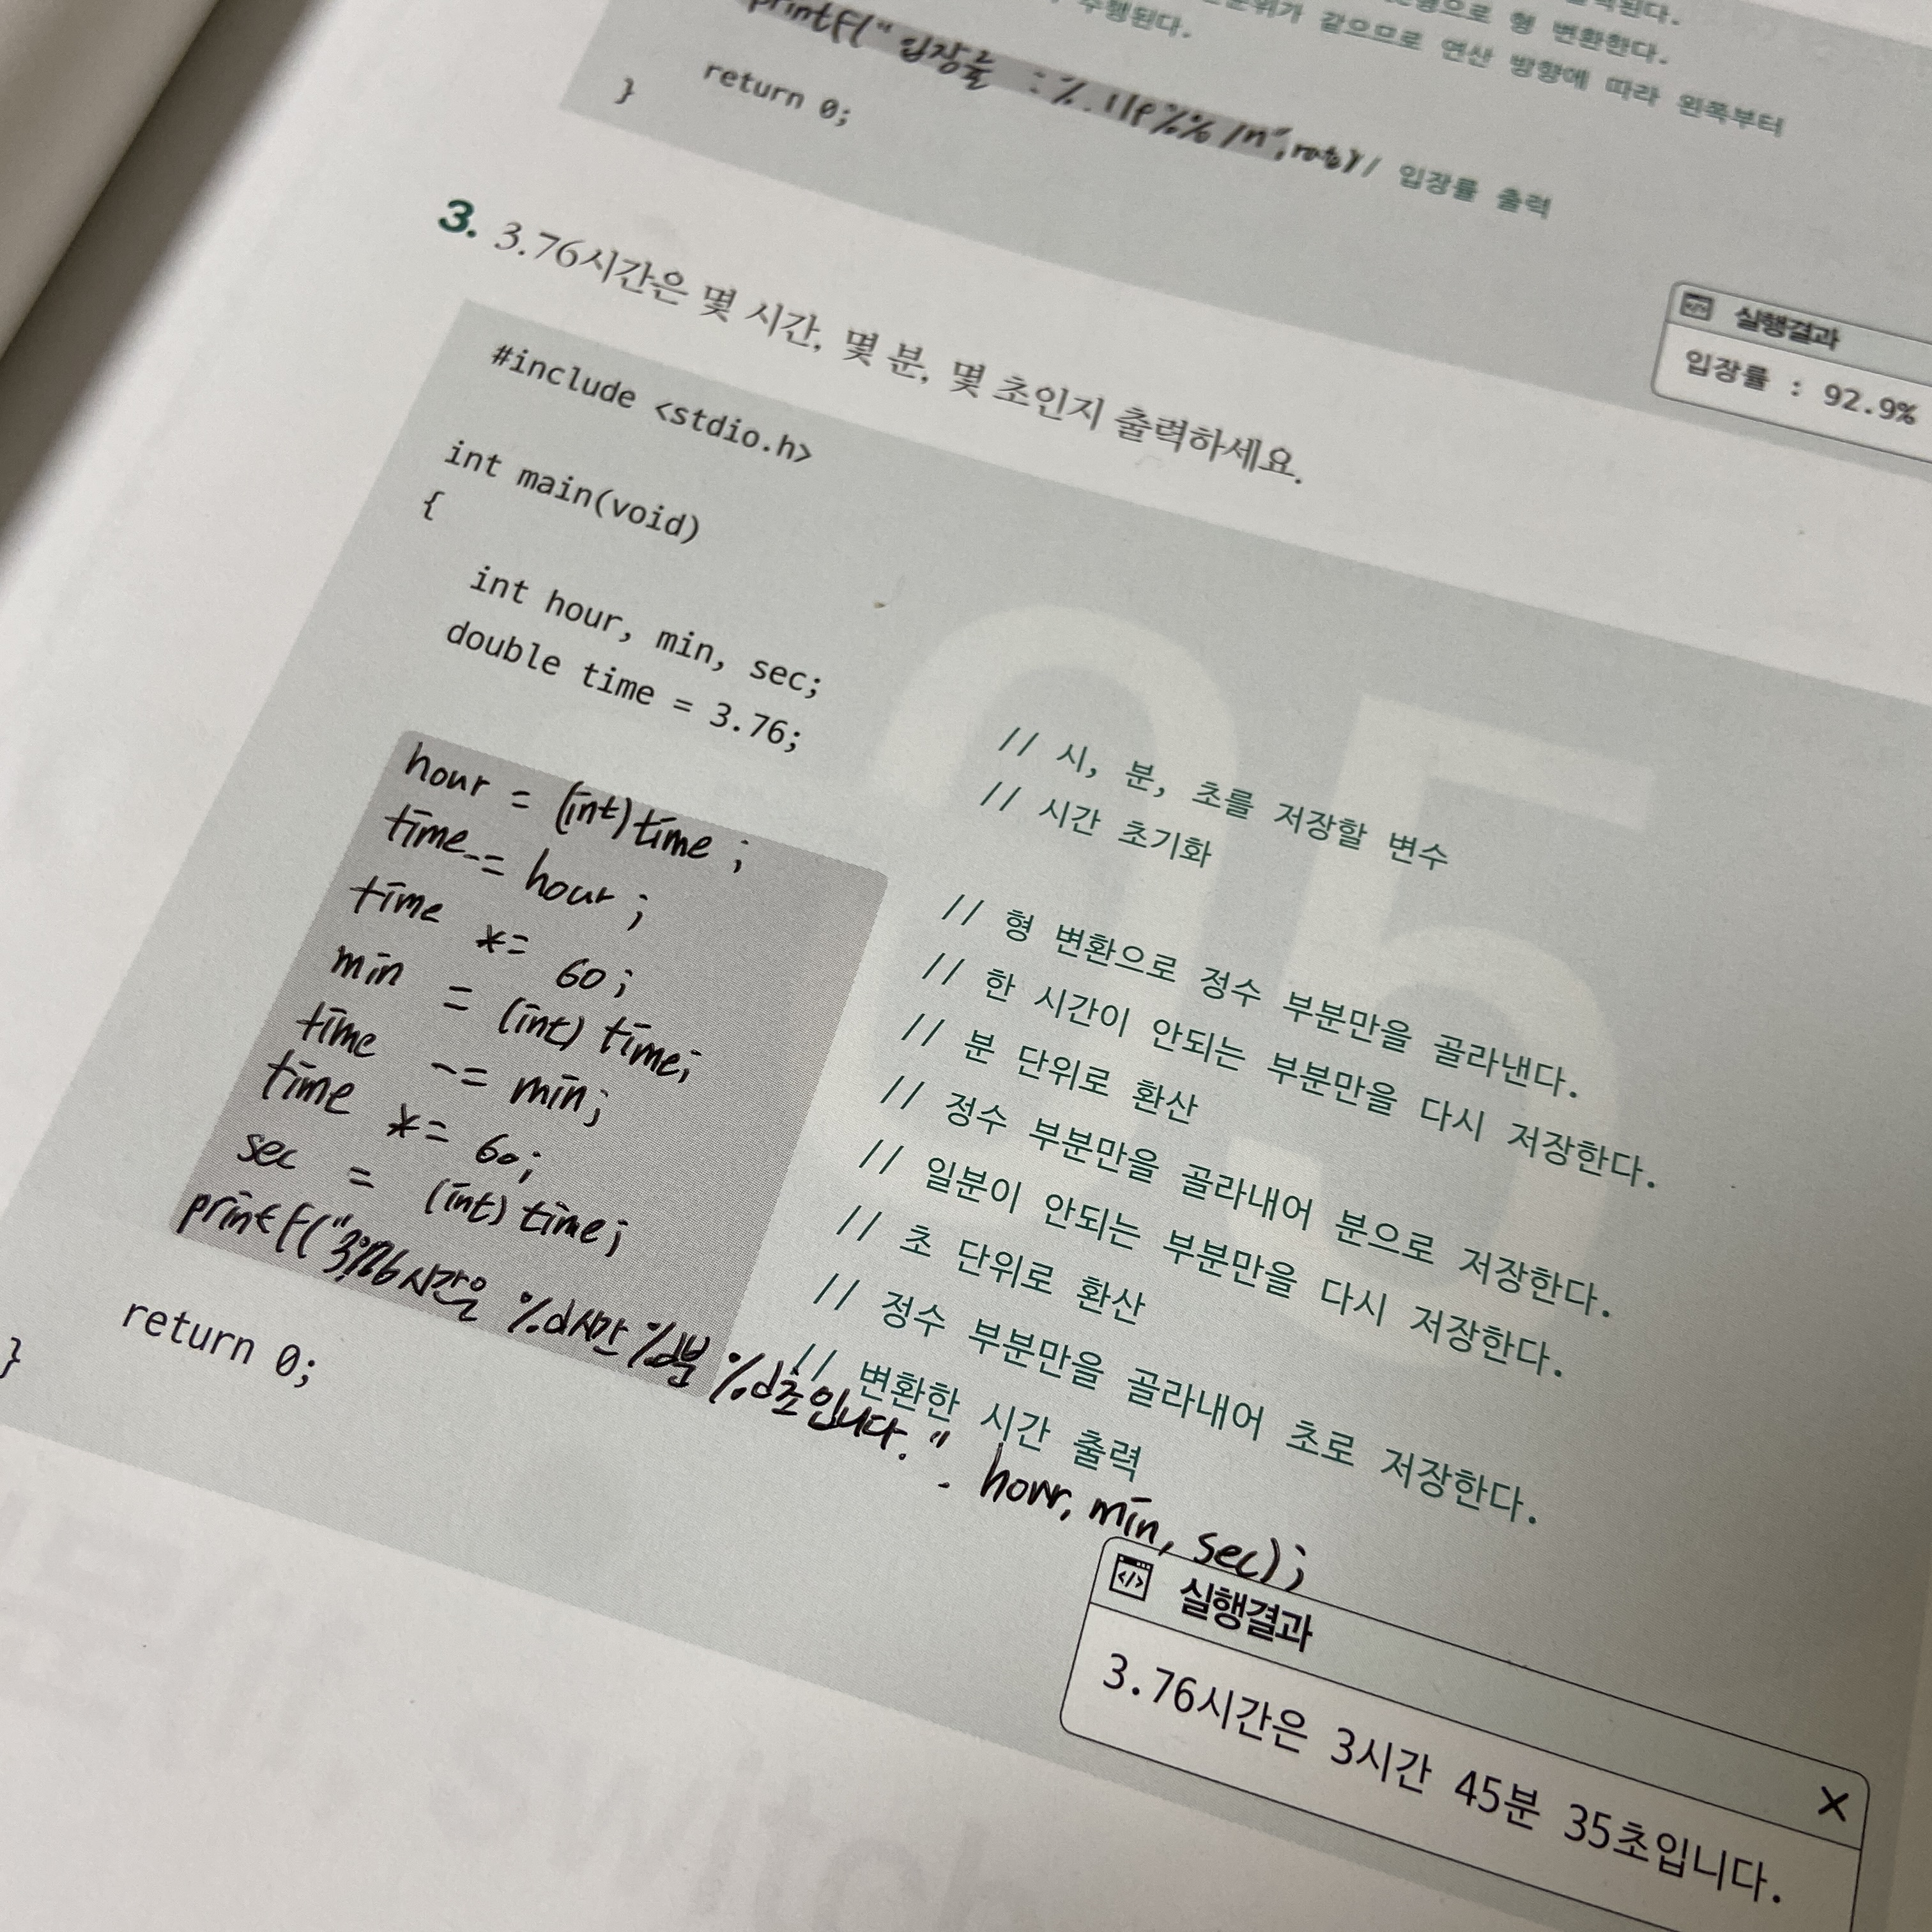 된다.
형으로 형 변환한다.
위가 같으므로 연산 방향에 따라 왼쪽부터
수행된다.
printf("입장률 : %.1lf%% /n", rate) // 입장률 출력
return 0;
}
실행결과
입장률 : 92.9%
3. 3.76시간은 몇 시간, 몇 분, 몇 초인지 출력하세요.
#include <stdio.h>
int main(void)
{
int hour, min, sec; // 시, 분, 초를 저장할 변수
double time = 3.76; // 시간 초기화
hour = (int)time ; // 형 변환으로 정수 부분만을 골라낸다.
time -= hour ; // 한 시간이 안되는 부분만을 다시 저장한다.
time *= 60 ; // 분 단위로 환산
min = (int) time; // 정수 부분만을 골라내어 분으로 저장한다.
time -= min; // 일분이 안되는 부분만을 다시 저장한다.
time *= 60; // 초 단위로 환산
sec = (int) time; // 정수 부분만을 골라내어 초로 저장한다.
printf("3.76시간은 %d시간 %d분 %d초입니다.", hour, min, sec); // 변환한 시간 출력
return 0;
}
실행결과
3.76시간은 3시간 45분 35초입니다.